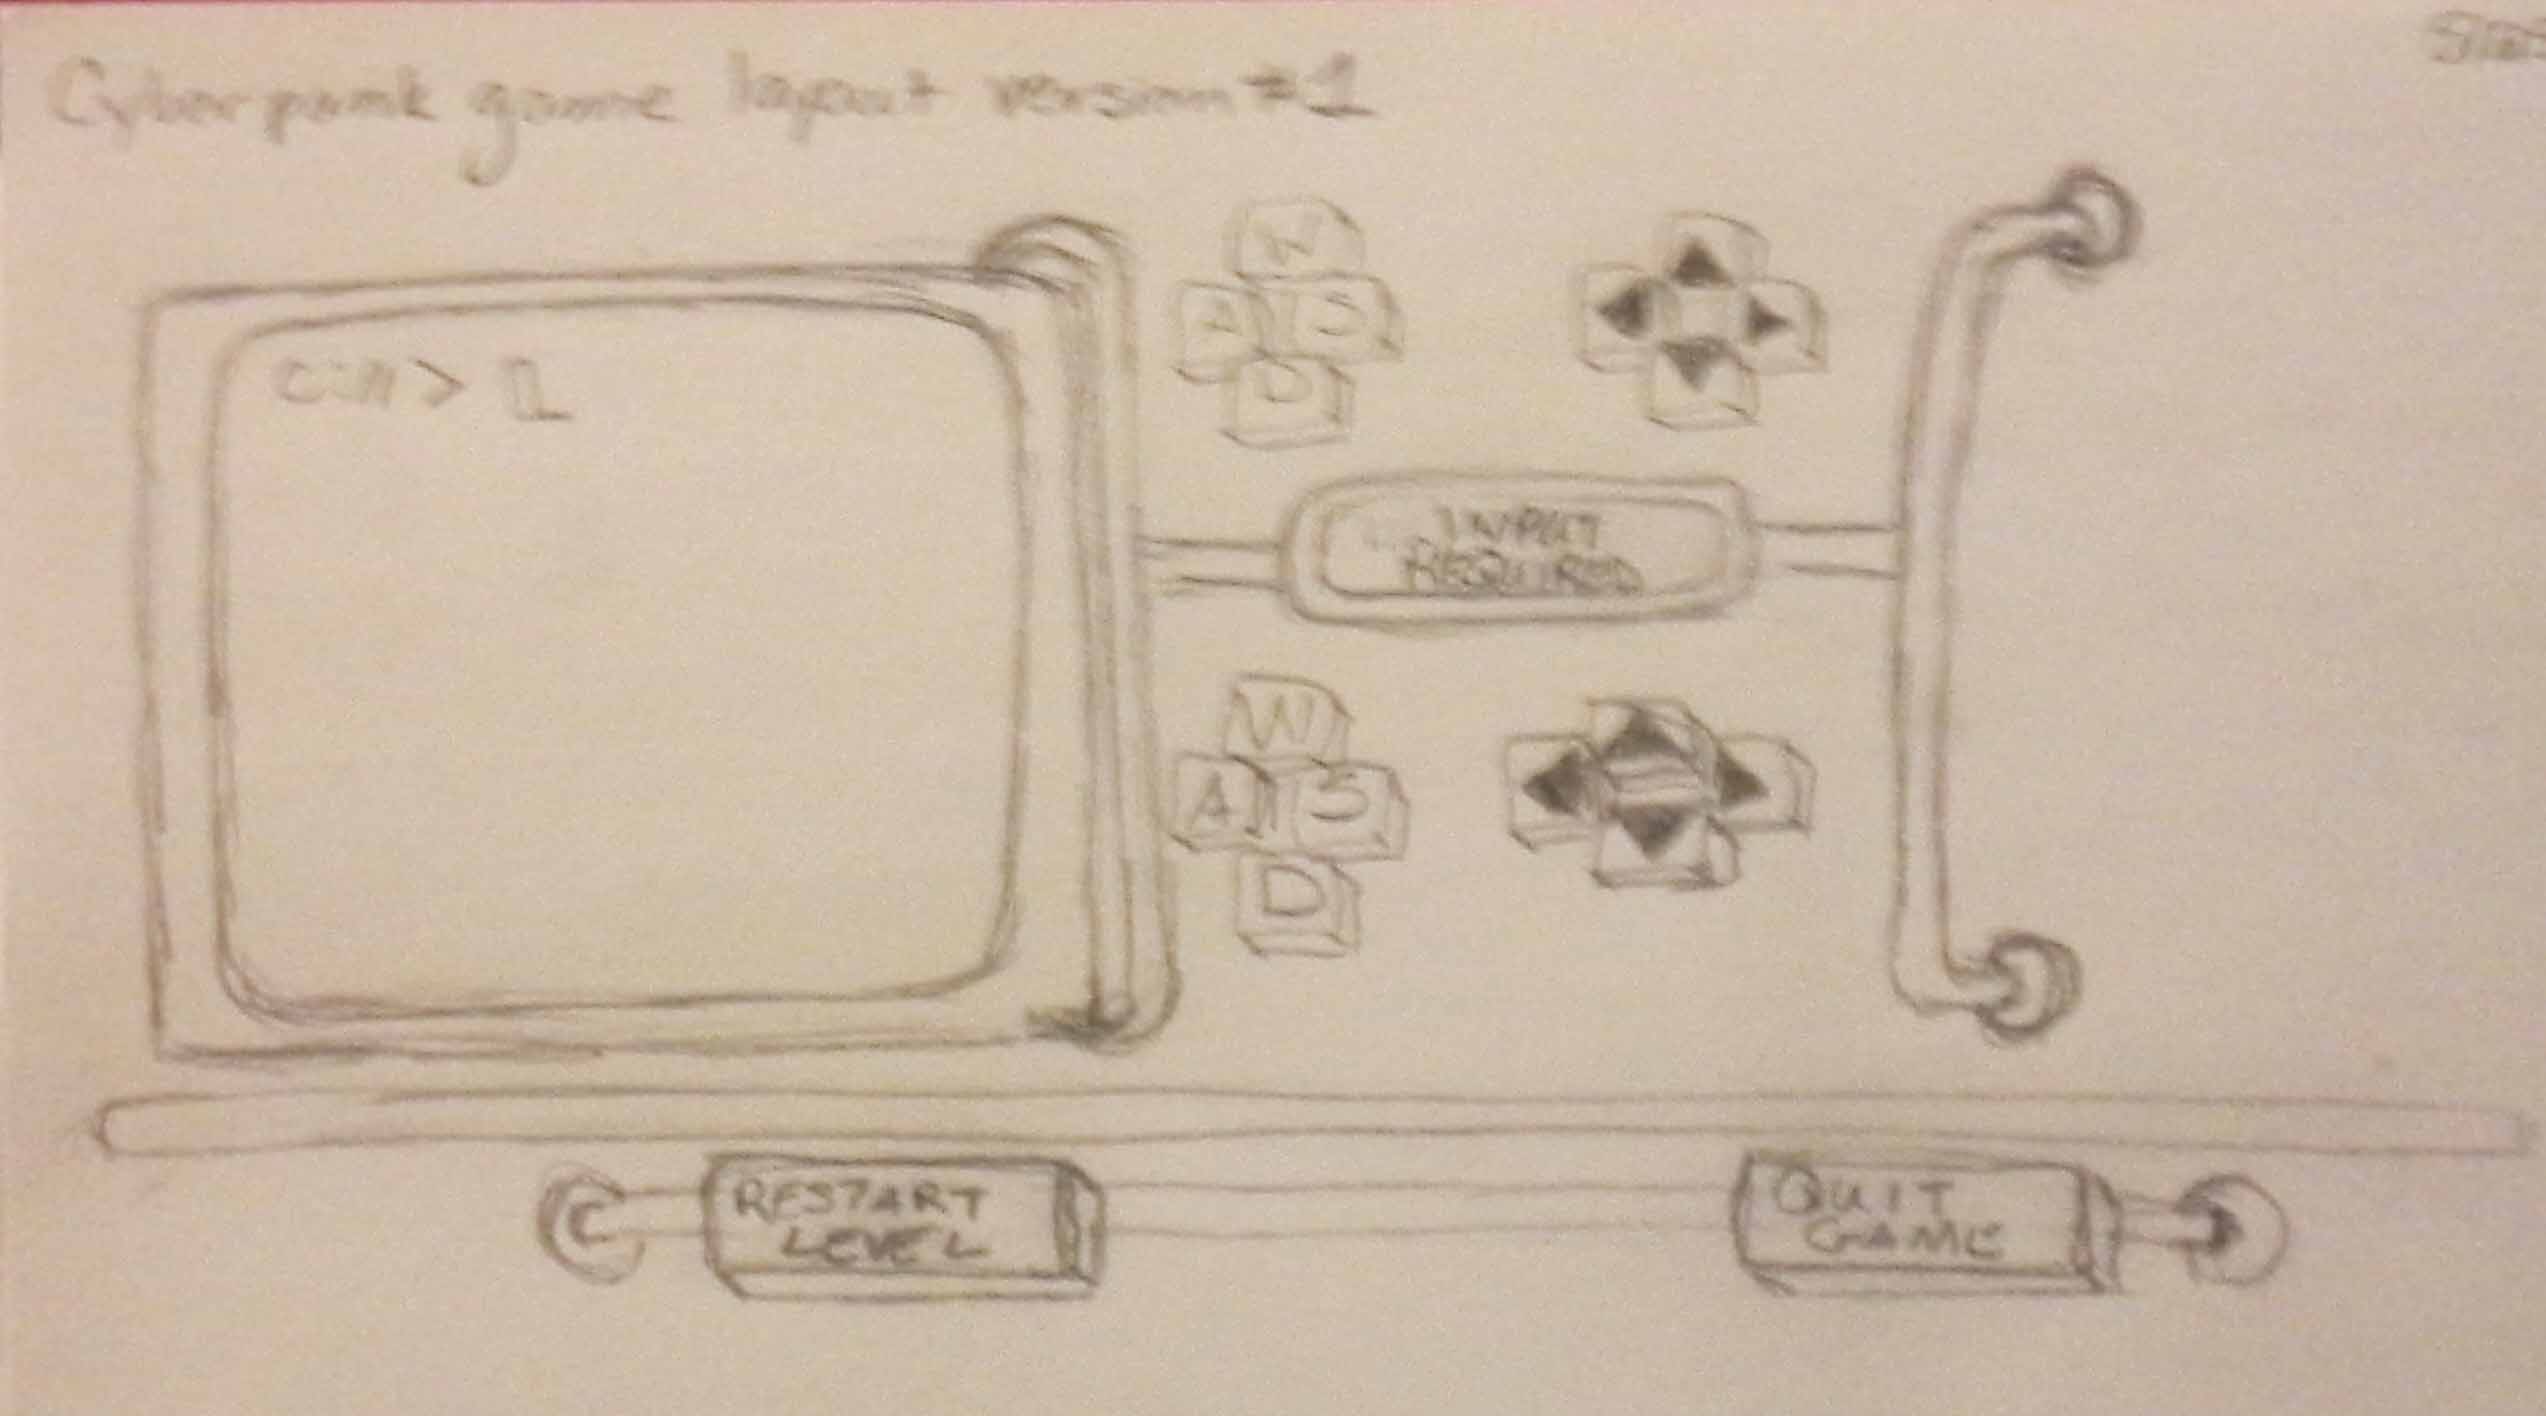 Cyberpunk game layout version #1
W
A S
D
INPUT
REQUIRED
W
A S
D
RESTART
LEVEL
QUIT
GAME